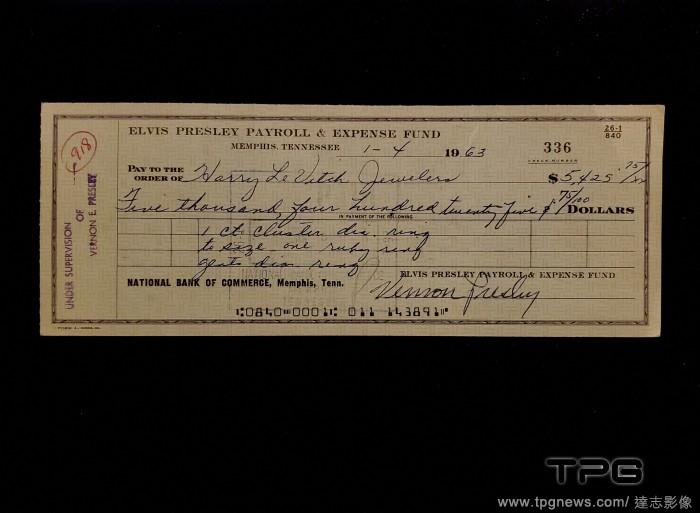 ELVIS PRESLEY PAYROLL & EXPENSE FUND
26-1
840
MEMPHIS, TENNESSEE 1-4 1963 336
CHECK NUMBER
918
PAY TO THE
ORDER OF Harry LeVitch Jewelers $ 5425 75/
Five thousand four hundred twenty five & 75/100 DOLLARS
IN PAYMENT OF THE FOLLOWING
1 ct. cluster dia. ring
to size one ruby ring
gents dia. ring
ELVIS PRESLEY PAYROLL & EXPENSE FUND
NATIONAL BANK OF COMMERCE, Memphis, Tenn.
Vernon Presley
⑆0840⑉0001⑆ 011 143891⑈
UNDER SUPERVISION OF
VERNON E. PRESLEY
TPG
www.tpgnews.com/ 達志影像